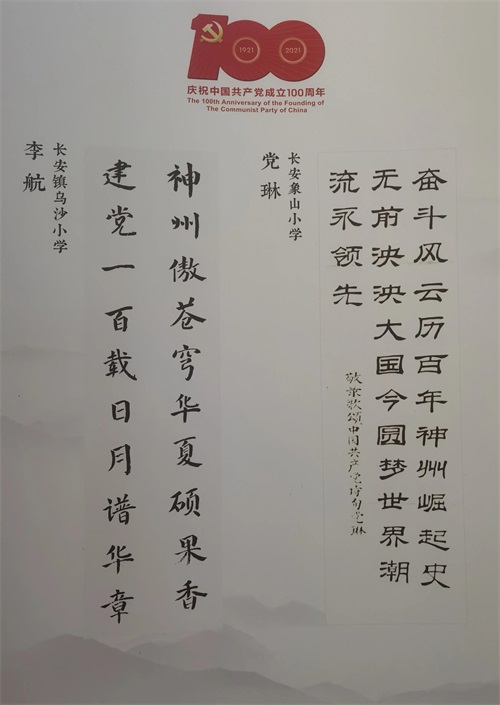 100
1921
2021
庆祝中国共产党成立100周年
The 100th Anniversary of the Founding of
The Communist Party of China
奋斗风云历百年神州崛起史
无前泱泱大国今圆梦世界潮
流永领先
敬录歌颂中国共产党诗句党琳
长安象山小学
党琳
神州傲苍穹华夏硕果香
建党一百载日月谱华章
长安镇乌沙小学
李航